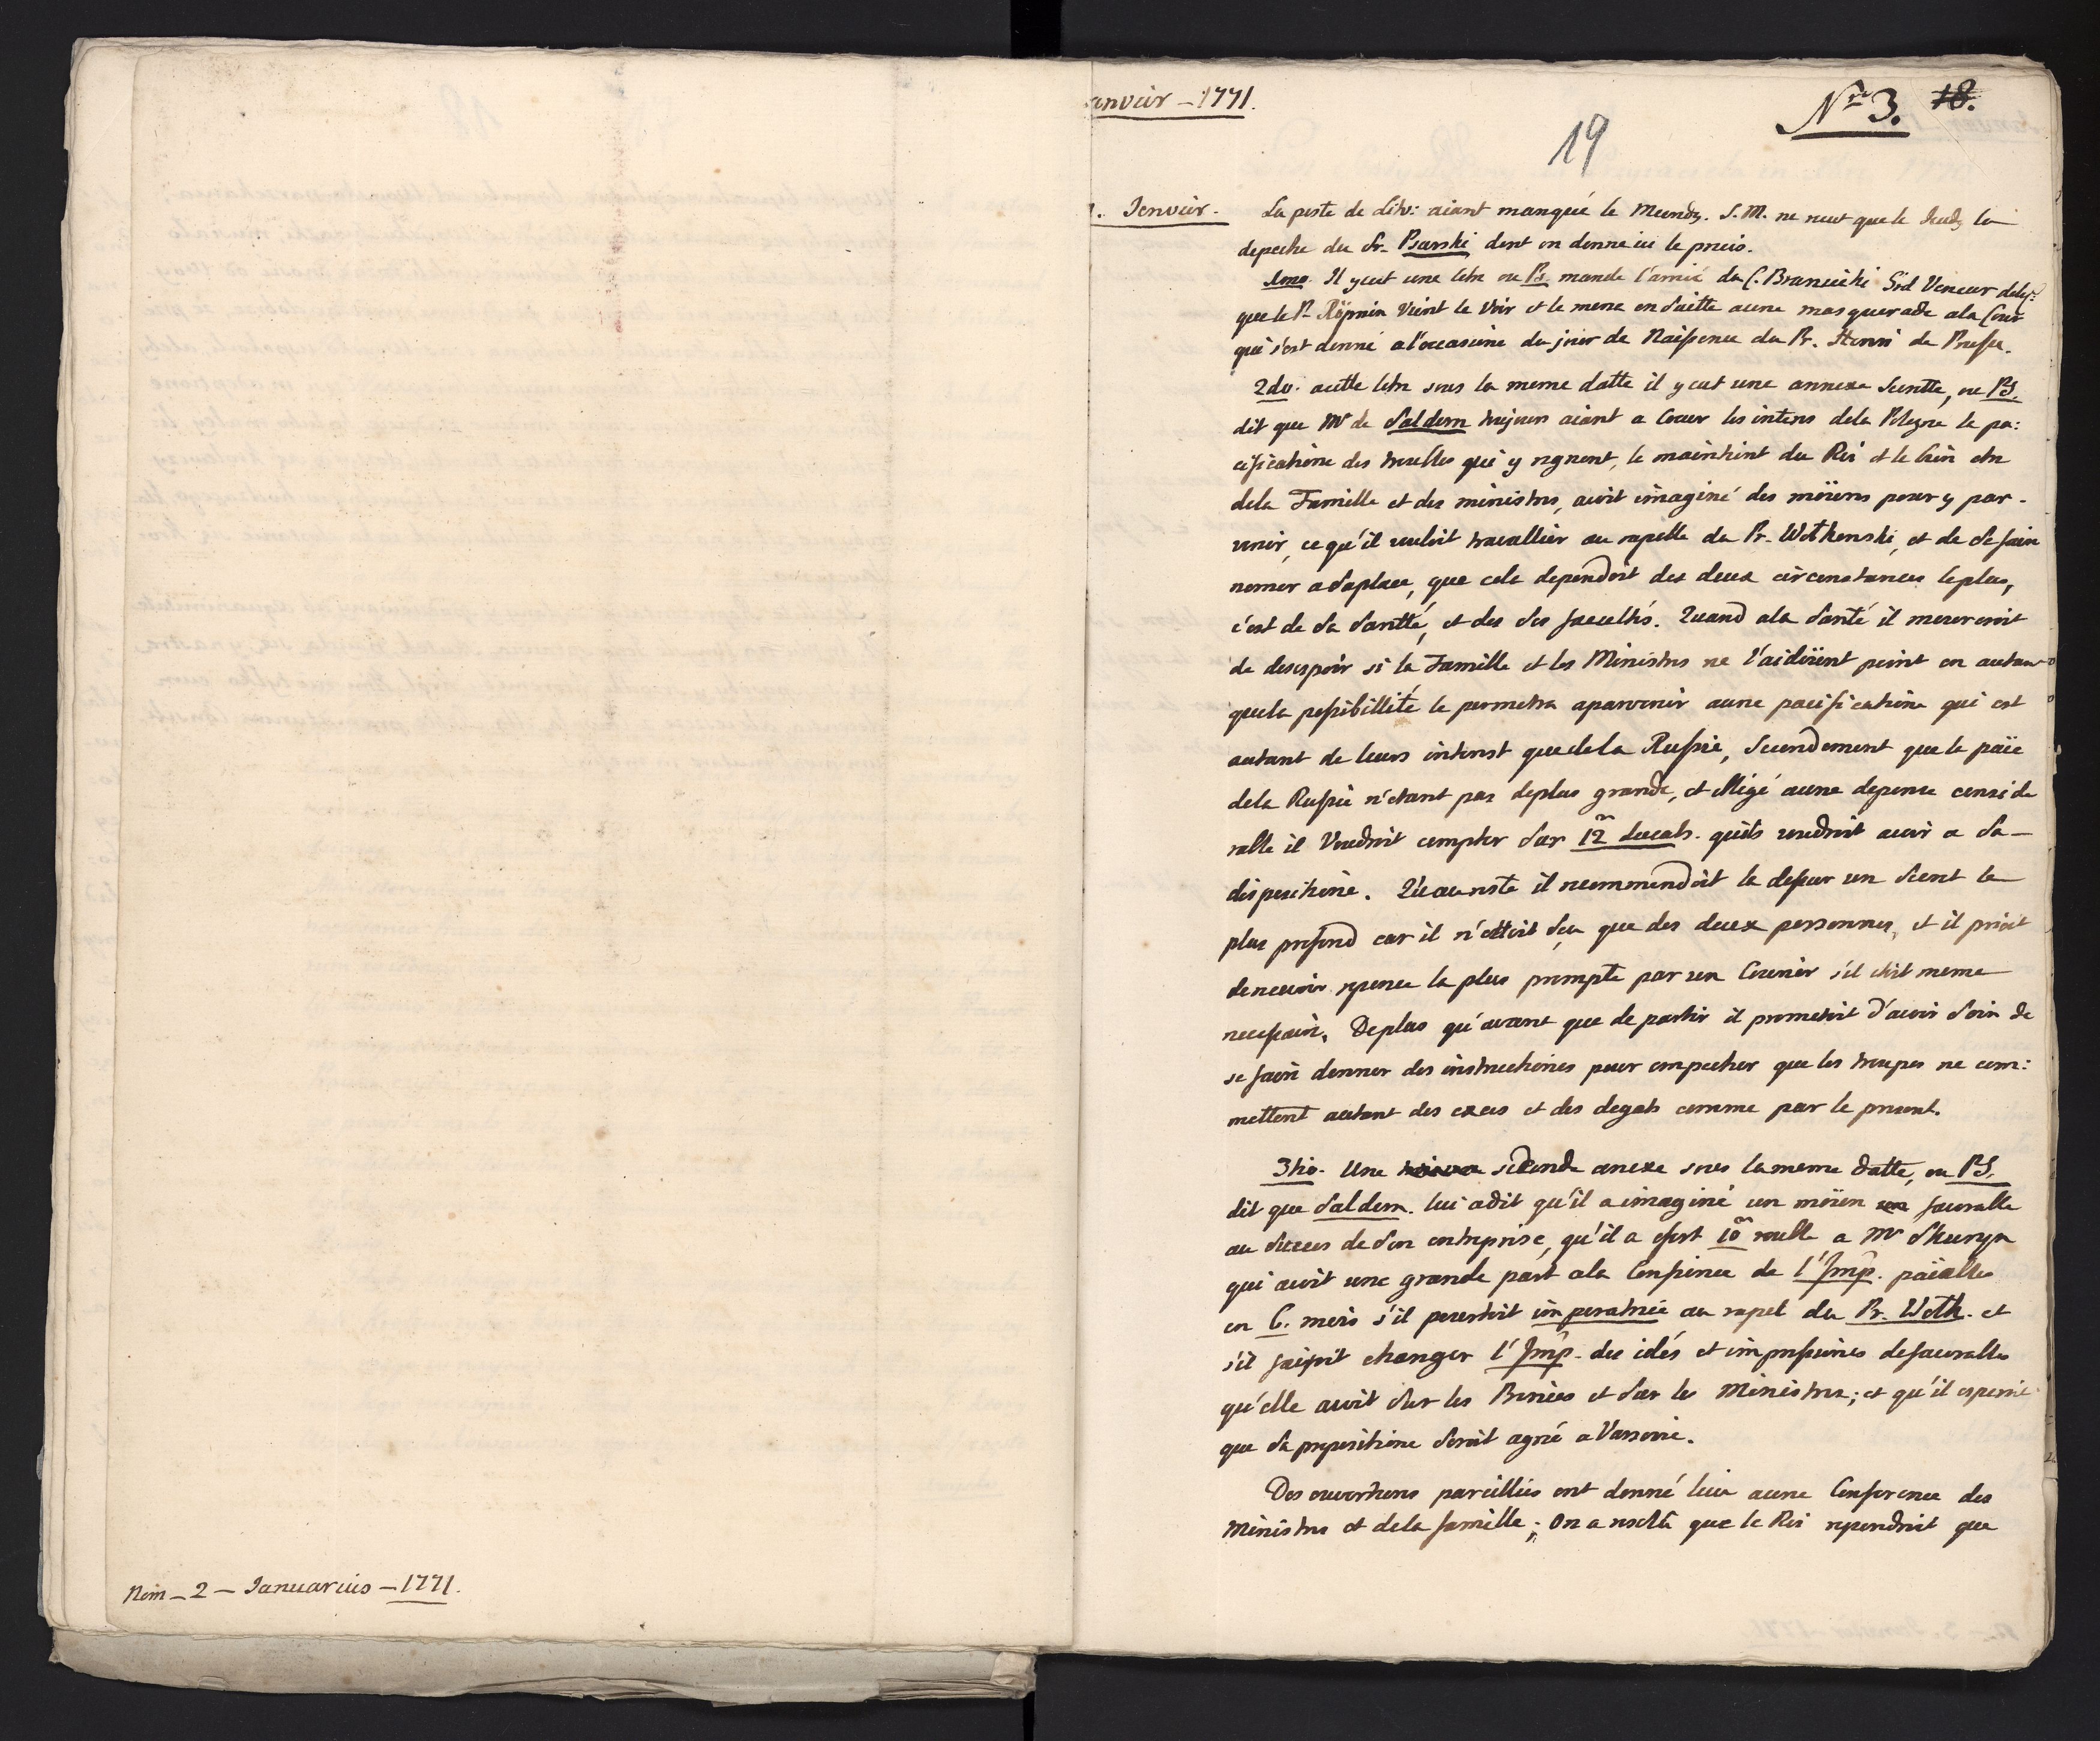 Nim - 2 - Januarius - 1771.
anvier - 1771.
Nro 3. 18.
19
1. Jenvier.
La poste de Lith: aiant manqué le Mecredy. S. M. ne reut que le Jeudy la
depeche du Sr. Psarski dont on donne ici le precis.
1mo. Il y eut une letre ou Ps. mande l'arrivé du C. Branicki Grd Veneur de la C:
que le P. Repnin vient le voir et le mena ensuitte a une masquerade a la Cour
qui s'est donné a l'occasione du jour de Naissence du Pr. Henri de Prusse.
2do. a cette letre sous la meme datte il y eut une annexe Secrette, ou PS.
dit que Mr de Saldern toujours aiant a Coeur les interes de la Pologne la pa:
cificatione des troubles qui y regnent, le maintient du Roi et le bien etre
de la Famille et des ministres, avoit imaginé des moïens pour y par-
venir, ce qu'il vouloit travallier au rapelle du Pr. Wolkonski, et de se faire
nomer a sa place, que cela dependoit des deux circonstances le plus,
c'est de sa santté, et des ses facultés. Quand a la santé il moureroit
de desespoir si la Famille et les Ministres ne l'aidoient point en autan
que la possibillité le permetra a parvenir a une pacificatione qui est
autant de leurs interest que de la Russie, Secondement que la païe
de la Russie n'etant pas de plus grande, et obligé a une depense conside
rable il Voudroit compter sur 12m ducats. qu'ils voudroit avoir a sa
dispositione. Qu'au reste il recommendoit la dessus un Secret le
plus profond car il n'ettoit sçu que des deux personnes, et il prioit
de recevoir reponse la plus prompte par un Courier s'il etoit meme
necessaire. De plus qu'avant que de partir il prometoit d'avoir soin de
se faire donner des instructiones pour empecher que les troupes ne com:
mettent autant des exces et des degats comme par le present.
3tio. Une seconde anexe sous la meme datte, ou PS.
dit que Saldern. lui a dit qu'il a imaginé un moïen favorable
au succes de son entreprise, qu'il a ofert 10m rouble a Mr
qui avoit une grande part a la Confience de l'Imp. païables
en 6. mois s'il au rapel du Pr. Wolk. et
s'il faisoit changer l'Imp. des idés et impressiones defavorables
qu'elle avoit sur les Princes et sur les Ministres; et qu'il esperoit
que sa propositione seroit agreé a Varsovie.
Des ouvertures pareilles ont donné lieu a une Conference des
Ministres et de la famille; On a resolû que le Roi repondroit que